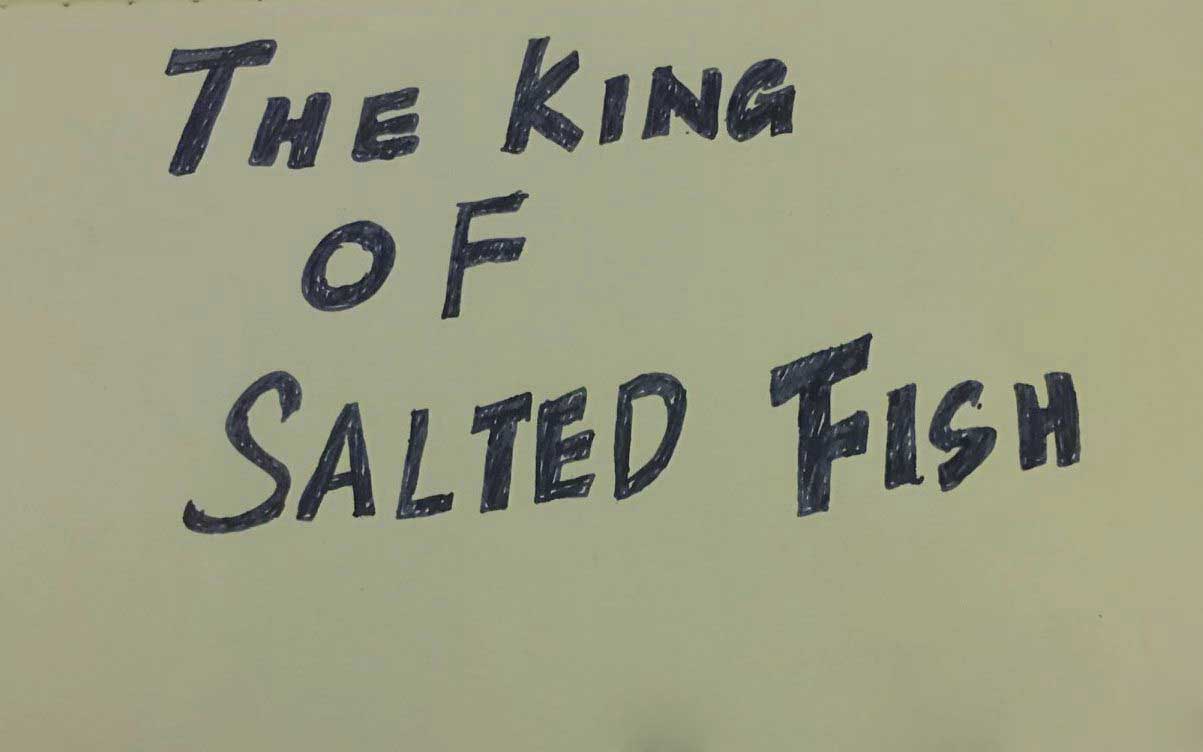 THE KING
OF
SALTED FISH